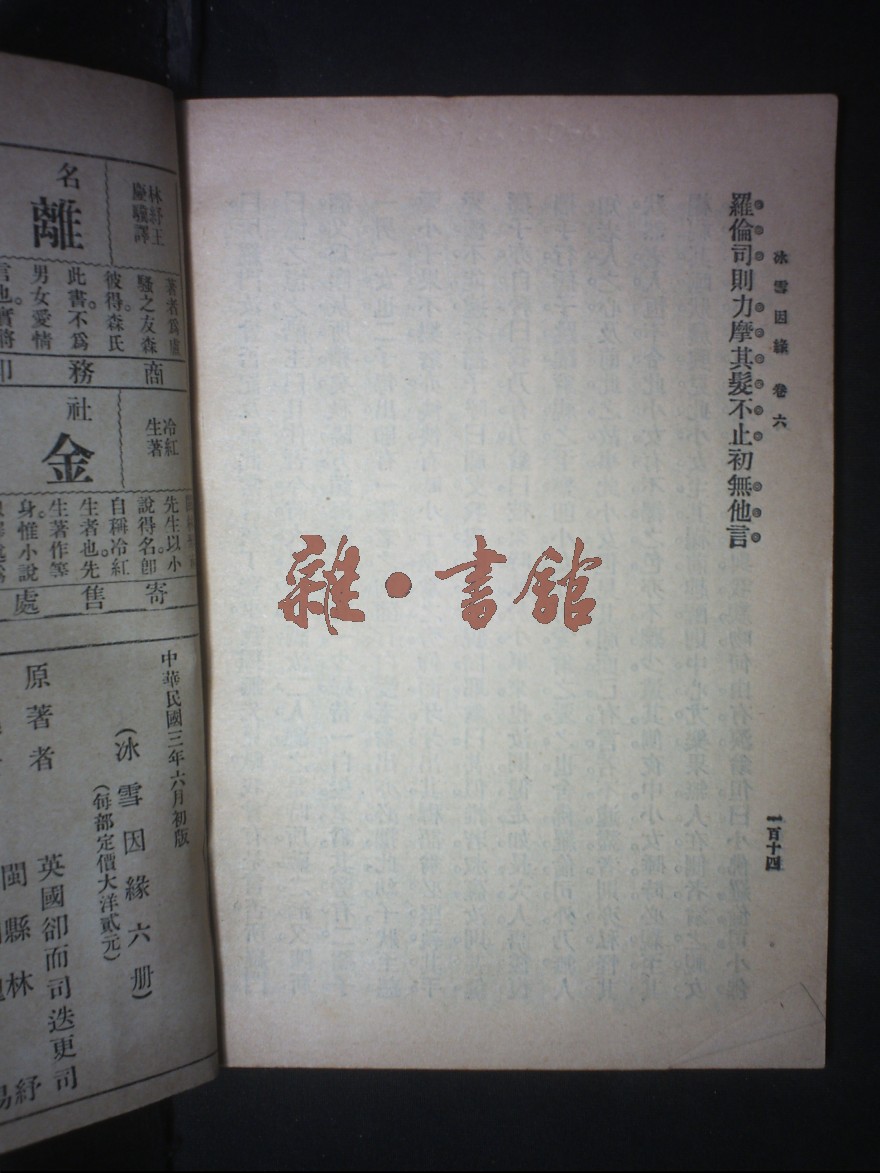 冰雪因緣 卷六
一百十四
羅倫司則力摩其髮不止初無他言
雜·書館
林紓王
慶驥譯
名
離
著者爲盧
騷之友森
彼得森氏
此書不爲
男女愛情
言也。實將
商務印
冷紅
生著
社
金
先生以小
說得名。卽
自稱冷紅
生者也。先
生著作等
身。惟小說
寄售處
中華民國三年六月初版
(冰雪因緣六册)
(每部定價大洋貳元)
原著者
英國卻而司迭更司
閩縣林紓